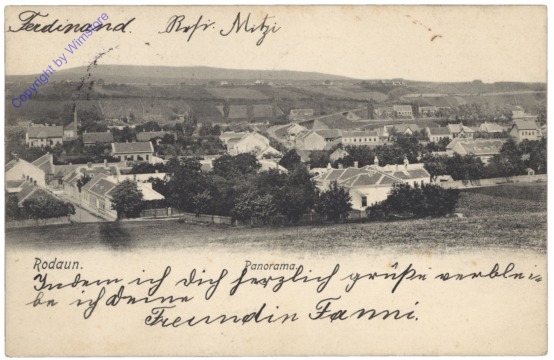 Ferdinand. Rosi. Mitzi
Copyright by Wimstore
Rodaun. Panorama.
Indem ich Dich herzlich grüße verblei=
be ich deine
Freundin Fanni.